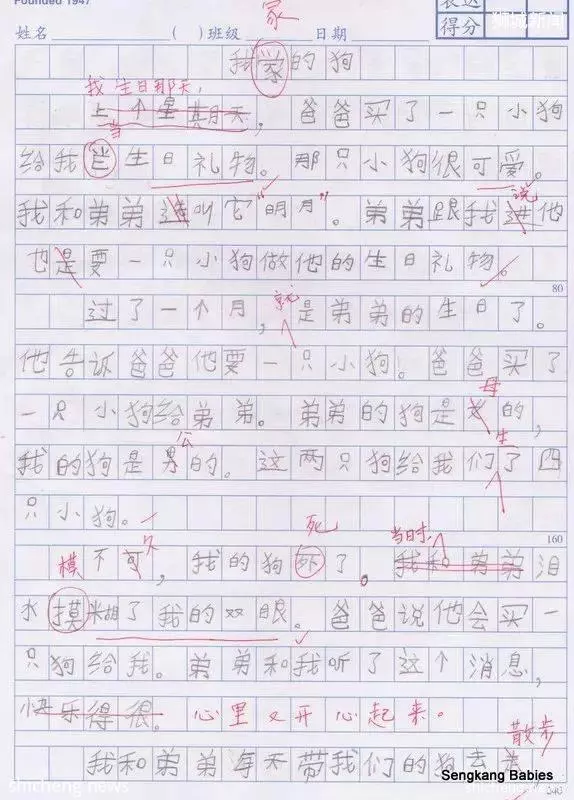 Founded 1947
家
表达
得分
狮城新闻
姓名 ( ) 班级 日期
我家的狗
我生日那天，
上个星其月天，爸爸买了一只小狗
当
给我当生日礼物。那只小狗很可爱。
说
我和弟弟 叫它"明月"。弟弟跟我 他
也是要一只小狗做他的生日礼物。
80
就
过了一个月，是弟弟的生日了。
他告诉爸爸他要一只小狗。爸爸买了
母
一只小狗给弟弟。弟弟的狗是 的，
公
生
我的狗是男的。这两只狗给我们了四
只小狗。
死
当日时
160
模
久
不可，我的狗 了。我和弟弟泪
水摸糊了我的双眼。爸爸说他会买一
只狗给我。弟弟和我听了这个消息，
快乐得很。心里又开心起来。
散步
我和弟弟每天带我们的狗去
240
shicheng news
Sengkang Babies